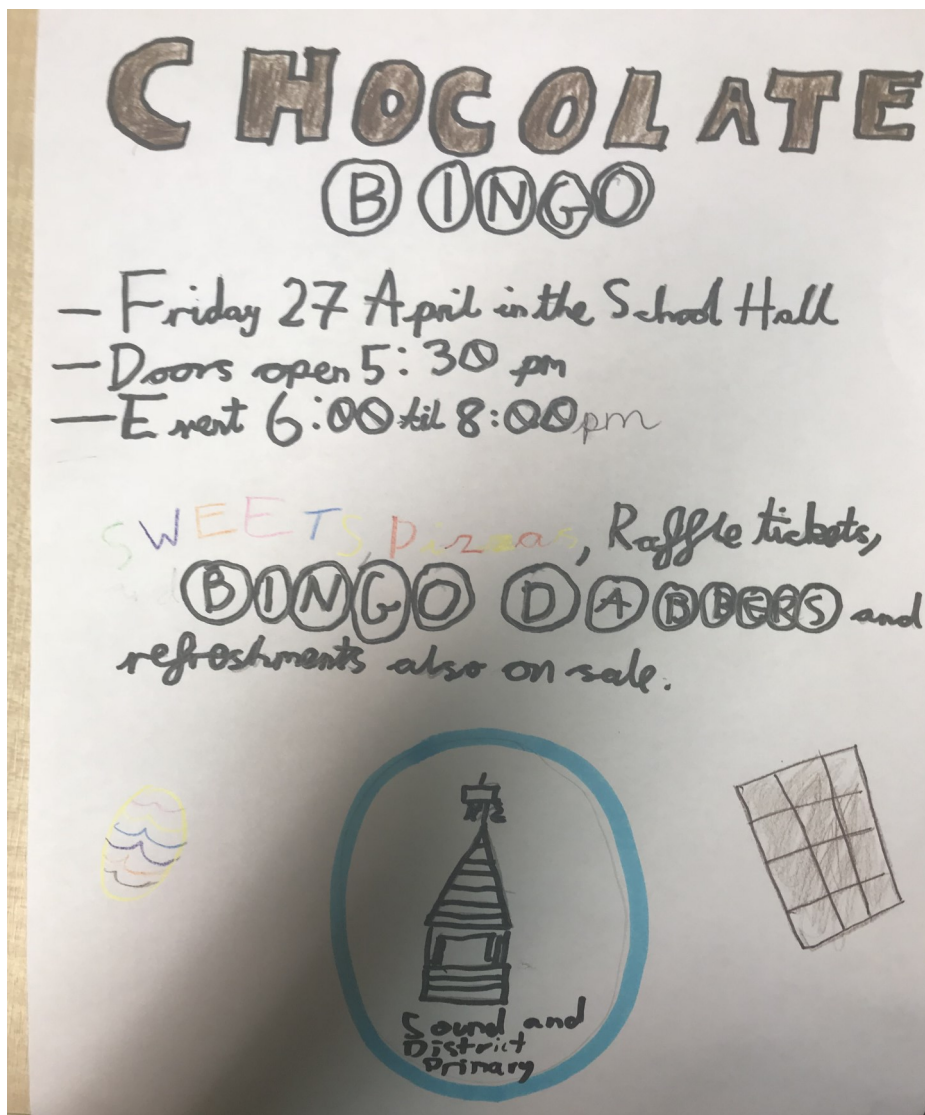 CHOCOLATE
BINGO
- Friday 27 April in the School Hall
- Doors open 5:30 pm
- Event 6:00 til 8:00pm
SWEETS, Pizzas, Raffle tickets,
BINGO DABBERS and
refreshments also on sale.
Sound and
District
Primary